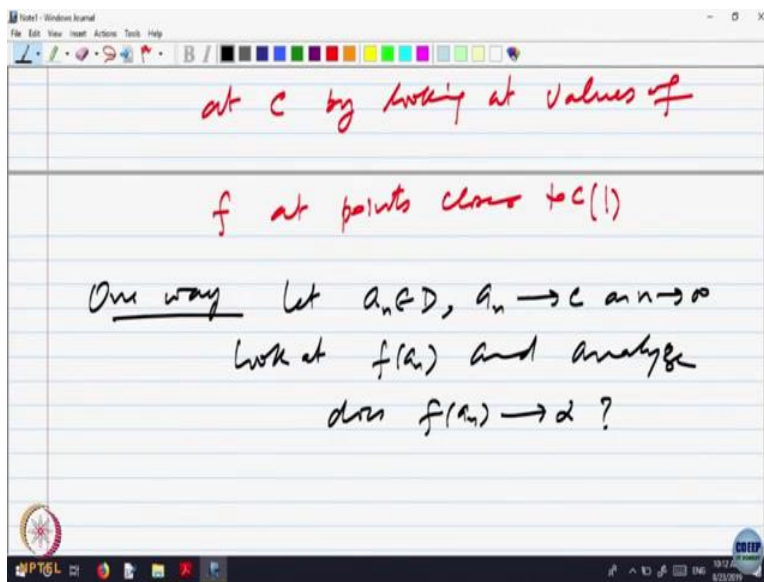 Note1 - Windows Journal
File Edit View Insert Actions Tools Help
at c by looking at values of
f at points close to c(!)
One way Let aₙ ∈ D, aₙ → c as n → ∞
Look at f(aₙ) and analyze
does f(aₙ) → α ?
NPTEL
CDEEP
ENG
8/23/2019